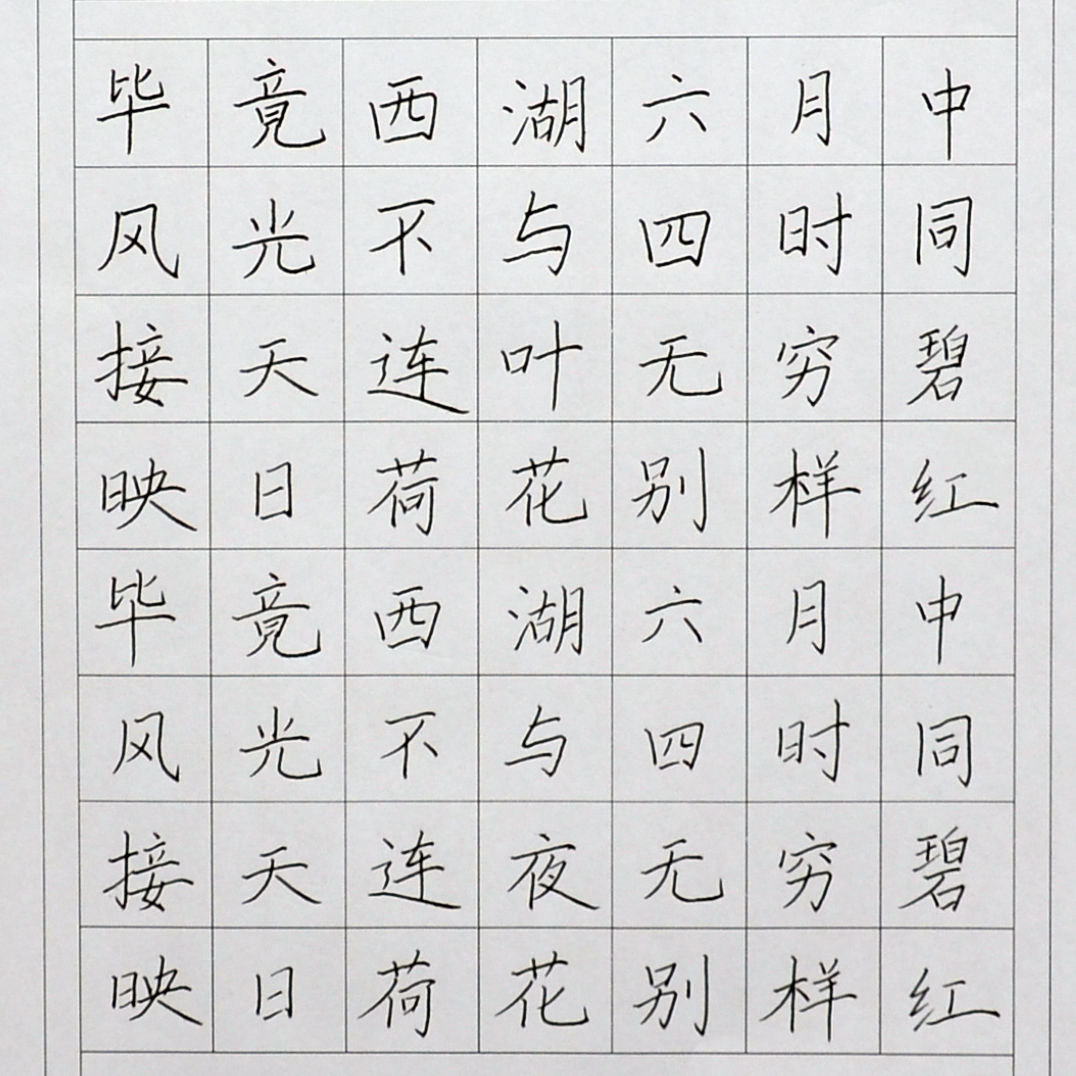 毕竟西湖六月中
风光不与四时同
接天连叶无穷碧
映日荷花别样红
毕竟西湖六月中
风光不与四时同
接天连夜无穷碧
映日荷花别样红